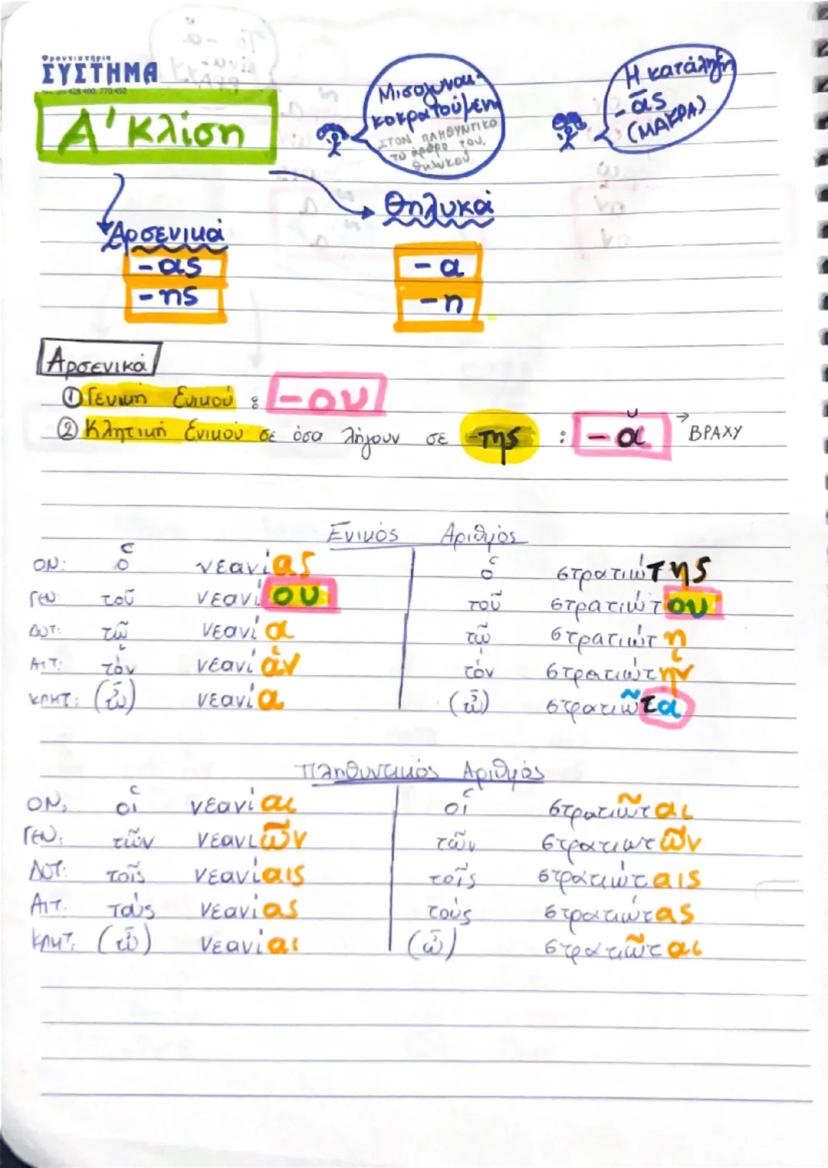 Φροντιστήρια
ΣΥΣΤΗΜΑ
Α' Κλίση
Μισογυναι-
κοκρατούμενη
ΣΤΟΝ ΠΛΗΘΥΝΤΙΚΟ
το άρθρο του
θηλυκού
Η κατάληξη
-ᾱς
(ΜΑΚΡΑ)
Αρσενικά
-ας
-ης
Θηλυκά
-α
-η
Αρσενικά
① Γενική Ενικού : -ου
② Κλητική Ενικού σε όσα λήγουν σε -της : -ᾰ → ΒΡΑΧΥ
Ενικός Αριθμός
ΟΝ: ὁ νεανίας ὁ στρατιώτης
ΓΕΝ: τοῦ νεανίου τοῦ στρατιώτου
ΔΟΤ: τῷ νεανίᾳ τῷ στρατιώτῃ
ΑΙΤ: τὸν νεανίαν τὸν στρατιώτην
ΚΛΗΤ: (ὦ) νεανία (ὦ) στρατιῶτα
Πληθυντικός Αριθμός
ΟΝ. οἱ νεανίαι οἱ στρατιῶται
ΓΕΝ: τῶν νεανιῶν τῶν στρατιωτῶν
ΔΟΤ: τοῖς νεανίαις τοῖς στρατιώταις
ΑΙΤ. τοὺς νεανίας τοὺς στρατιώτας
ΚΛΗΤ. (ὦ) νεανίαι (ὦ) στρατιῶται